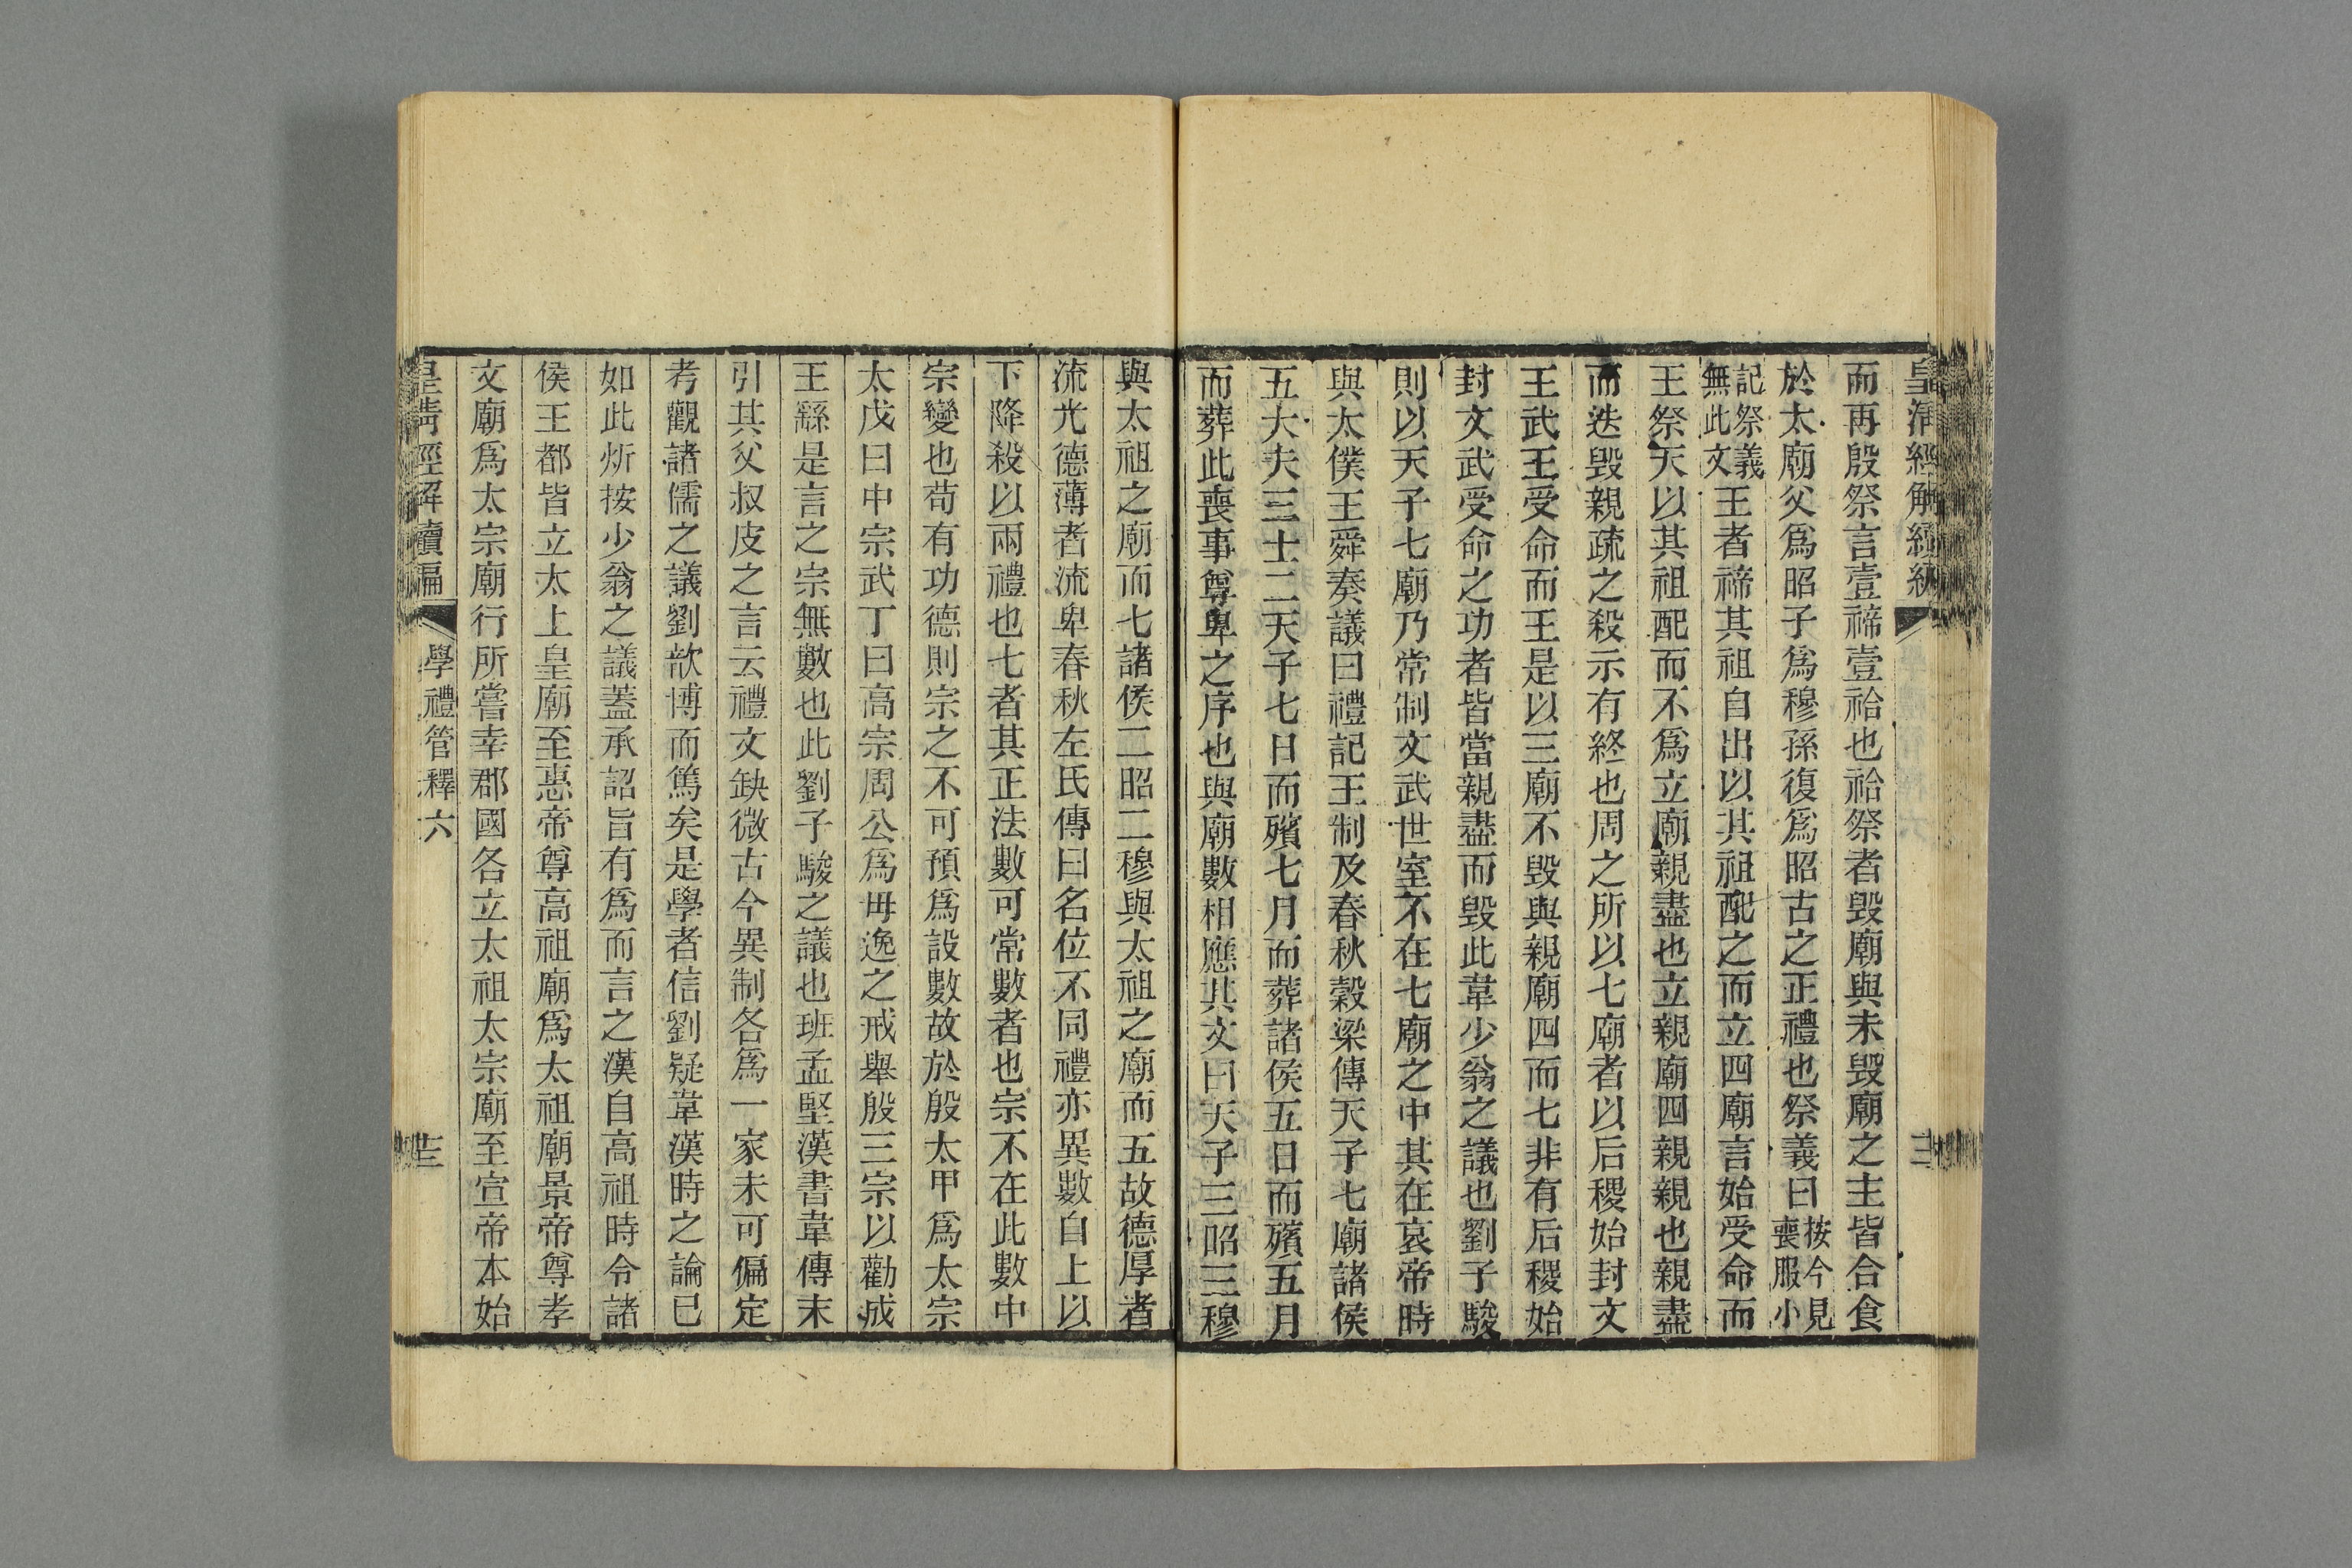 皇清經解續編
而再殷祭言壹禘壹祫也祫祭者毀廟與未毀廟之主皆合食
於太廟父爲昭子爲穆孫復爲昭古之正禮也祭義曰按今見喪服小
記祭義無此文王者禘其祖自出以其祖配之而立四廟言始受命而
王祭天以其祖配而不爲立廟親盡也立親廟四親親也親盡
而迭毀親疏之殺示有終也周之所以七廟者以后稷始封文
王武王受命而王是以三廟不毀與親廟四而七非有后稷始
封文武受命之功者皆當親盡而毀此韋少翁之議也劉子駿
則以天子七廟乃常制文武世室不在七廟之中其在哀帝時
與太僕王舜奏議曰禮記王制及春秋穀梁傳天子七廟諸侯
五大夫三士二天子七日而殯七月而葬諸侯五日而殯五月
而葬此喪事尊卑之序也與廟數相應其文曰天子三昭三穆
與太祖之廟而七諸侯二昭二穆與太祖之廟而五故德厚者
流光德薄者流卑春秋左氏傳曰名位不同禮亦異數自上以
下降殺以兩禮也七者其正法數可常數者也宗不在此數中
宗變也苟有功德則宗之不可預爲設數故於殷太甲爲太宗
太戊曰中宗武丁曰高宗周公爲毋逸之戒舉殷三宗以勸成
王繇是言之宗無數也此劉子駿之議也班孟堅漢書韋傳末
引其父叔皮之言云禮文缺微古今異制各爲一家未可偏定
考觀諸儒之議劉歆博而篤矣是學者信劉疑韋漢時之論已
如此炘按少翁之議蓋承詔旨有爲而言之漢自高祖時令諸
侯王都皆立太上皇廟至惠帝尊高祖廟爲太祖廟景帝尊孝
文廟爲太宗廟行所嘗幸郡國各立太祖太宗廟至宣帝本始
皇清經解續編 學禮管釋六 十三